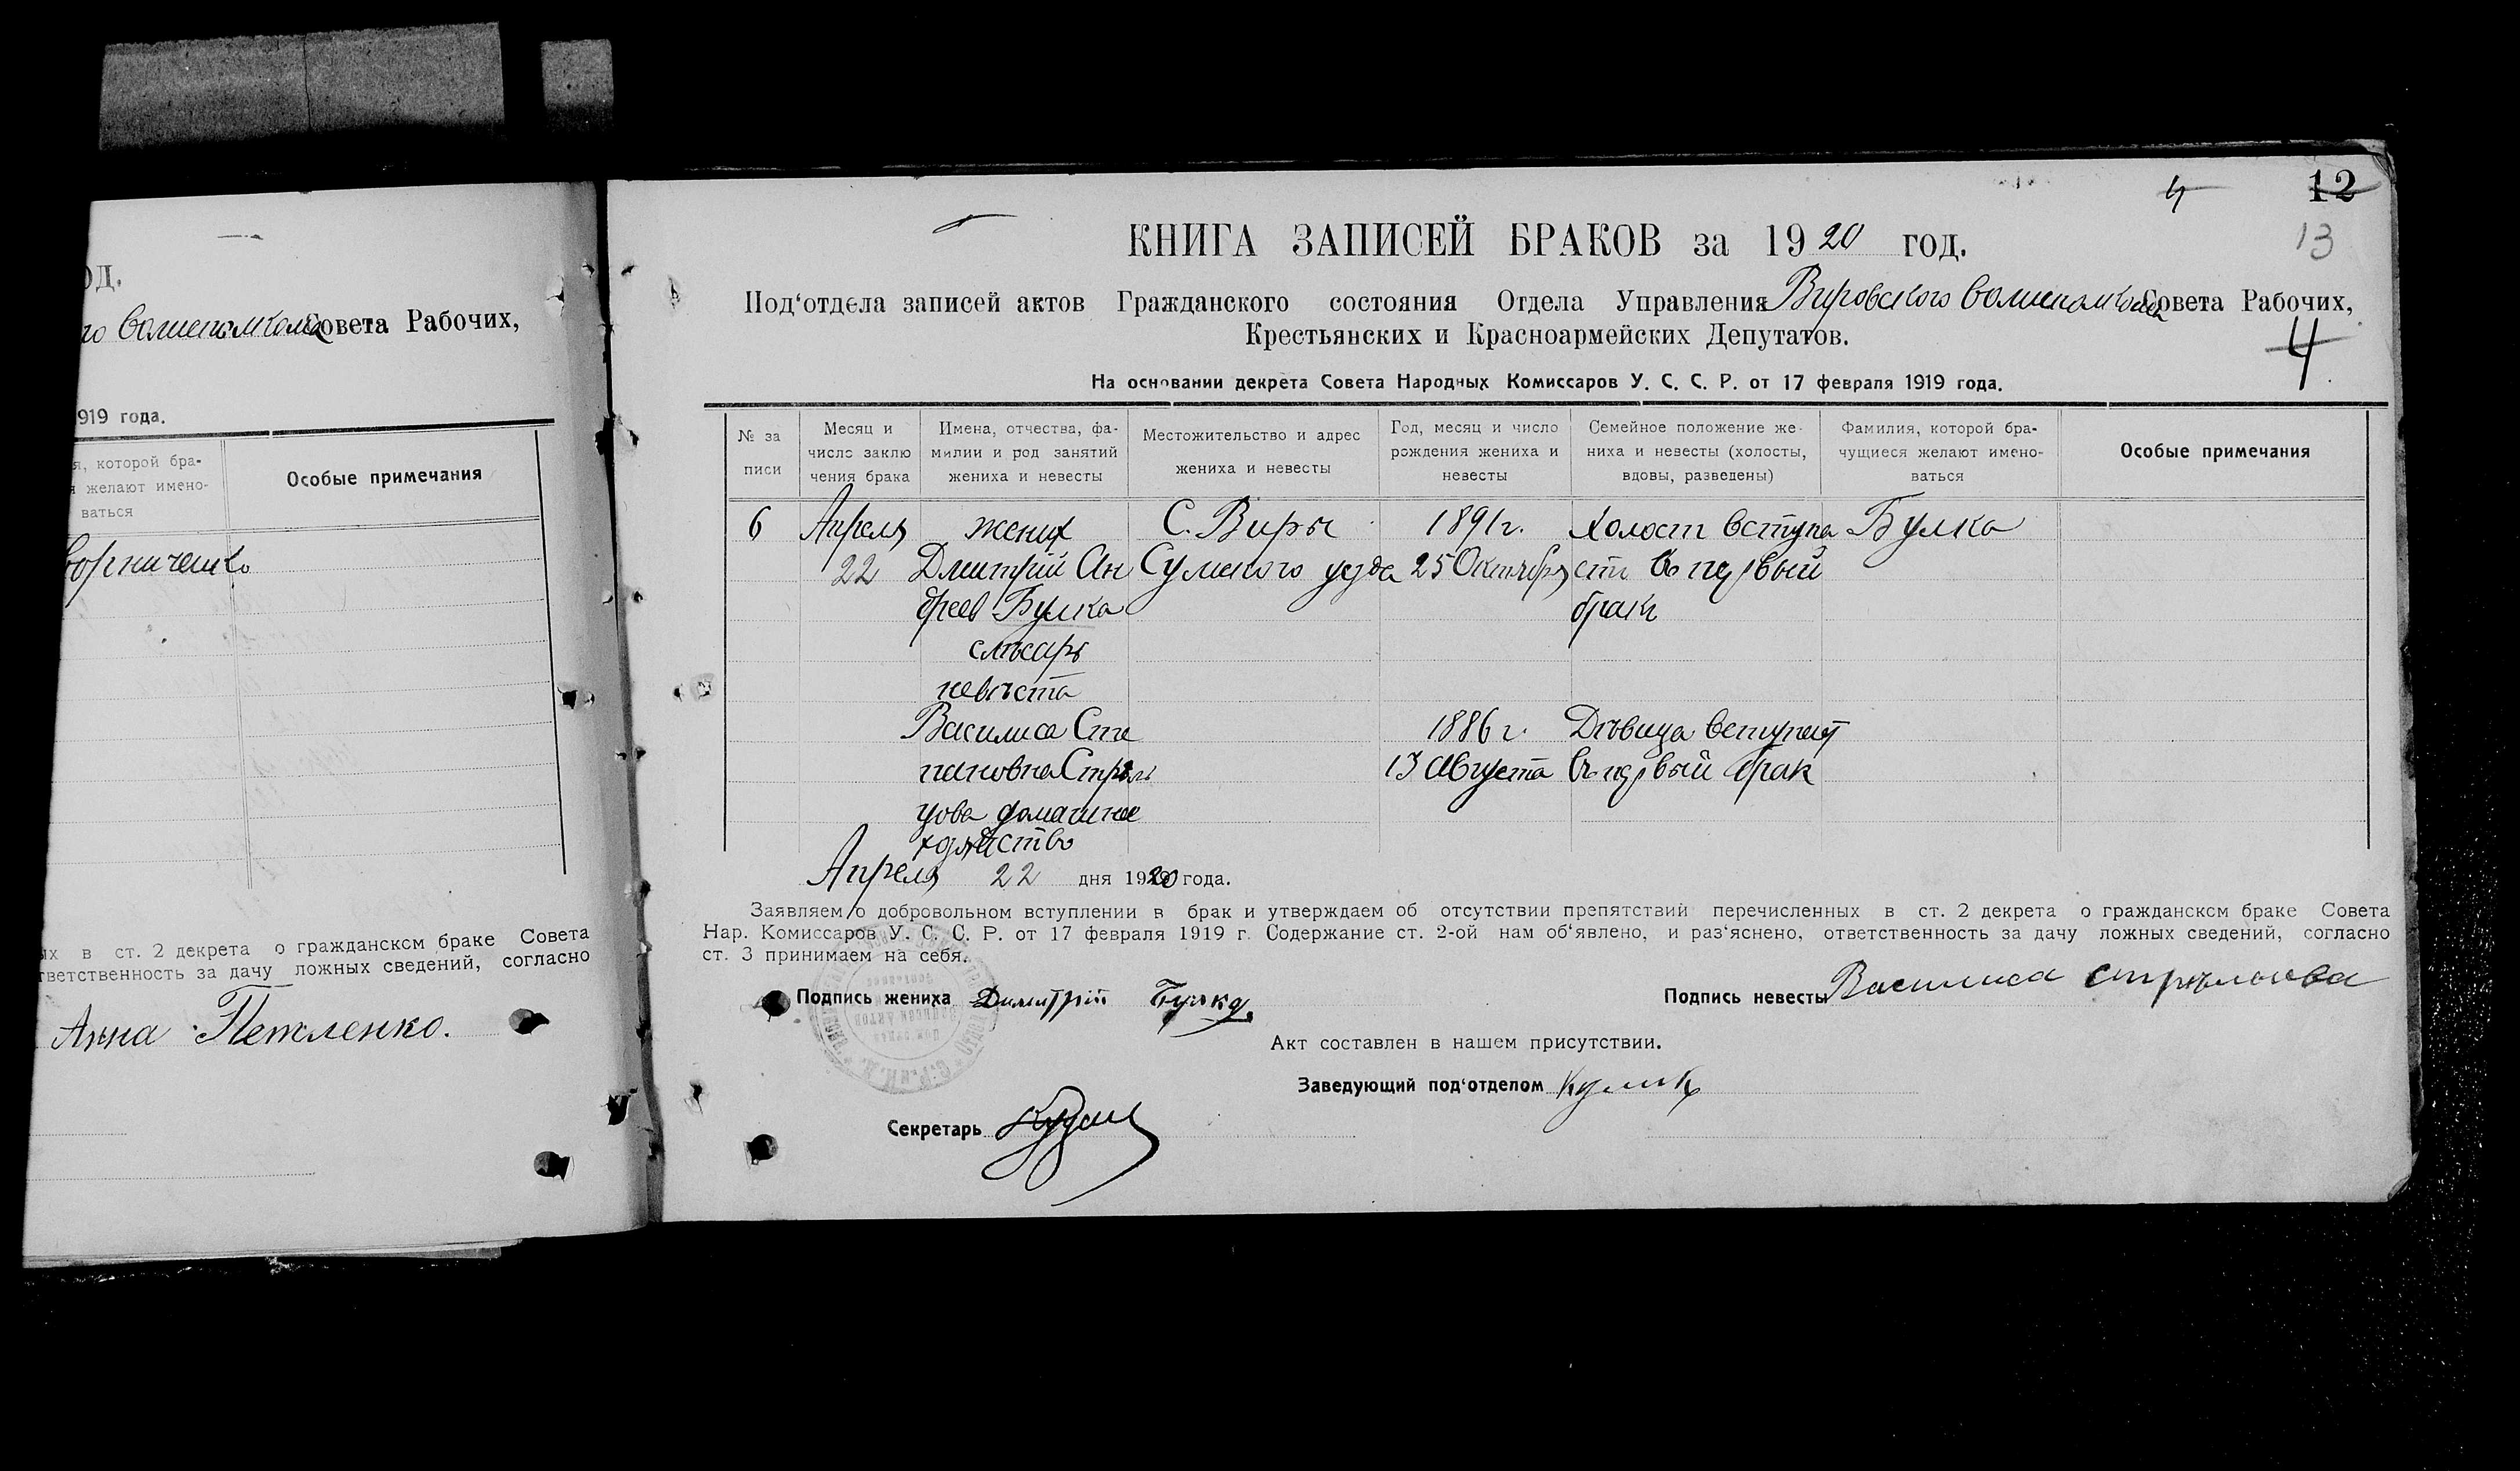 од.
го волисполкома Совета Рабочих,
919 года.
я, которой бра-
я желают имено-
ваться
Особые примечания
ых в ст. 2 декрета о гражданском браке Совета
тветственность за дачу ложных сведений, согласно
Анна Петленко.
4 12
13
КНИГА ЗАПИСЕЙ БРАКОВ за 1920 год.
Под‘отдела записей актов Гражданского состояния Отдела Управления Вировского волисполкома Совета Рабочих,
Крестьянских и Красноармейских Депутатов.
4
На основании декрета Совета Народных Комиссаров У. С. С. Р. от 17 февраля 1919 года.
№ за
писи
Месяц и
число заклю
чения брака
Имена, отчества, фа-
милии и род занятий
жениха и невесты
Местожительство и адрес
жениха и невесты
Год, месяц и число
рождения жениха и
невесты
Семейное положение же-
ниха и невесты (холосты,
вдовы, разведены)
Фамилия, которой бра-
чущиеся желают имено-
ваться
Особые примечания
6 Апреля жених С. Виры 1891 г. Холост вступа Булка
22 Дмитрій Ан Сумского уезда 25 Октября ет въ первый
дреев Булка бракъ
слѣсарь
невѣста
Василиса Сте 1886 г. Дѣвица вступает
пановна Стрѣль 13 Августа въ первый брак
цова домашнее
хозяйство
Апреля 22 дня 1920 года.
Заявляем о добровольном вступлении в брак и утверждаем об отсутствии препятствий перечисленных в ст. 2 декрета о гражданском браке Совета
Нар. Комиссаров У. С. С. Р. от 17 февраля 1919 г. Содержание ст. 2-ой нам об‘явлено, и раз‘яснено, ответственность за дачу ложных сведений, согласно
ст. 3 принимаем на себя.
Подпись жениха Димитрій Булка. Подпись невесты Василиса
Акт составлен в нашем присутствии.
Заведующий под‘отделом Кулик
Секретарь